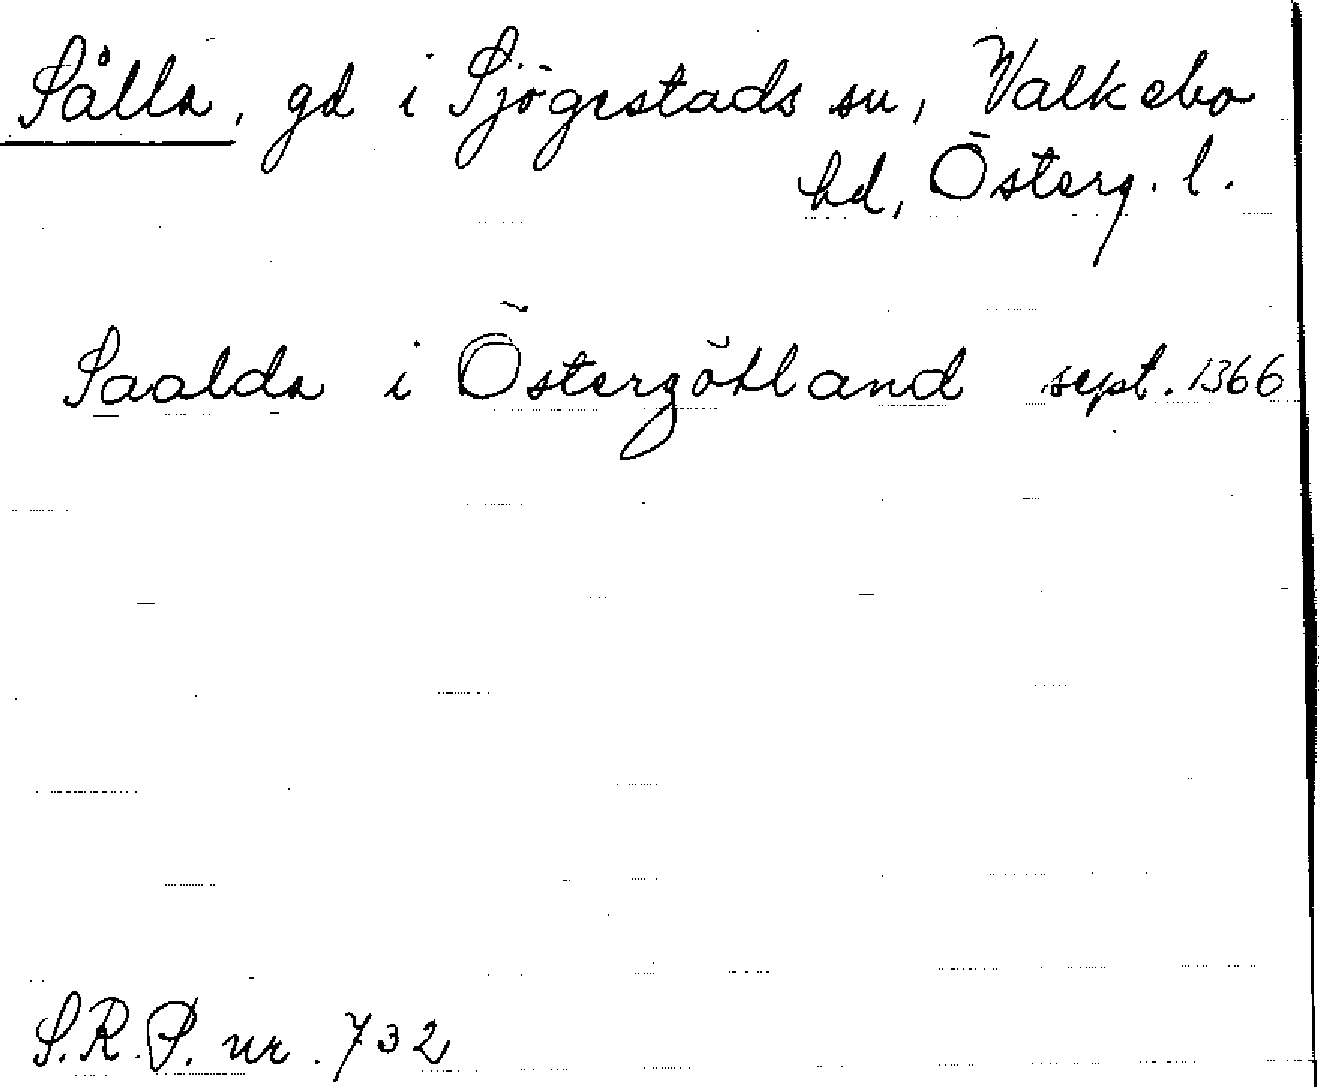 Sålla, gd i Sjögestads sn, Valkebo
hd, Österg. l.
Saalda i Östergötland sept. 1366
S.R.P. nr. 732